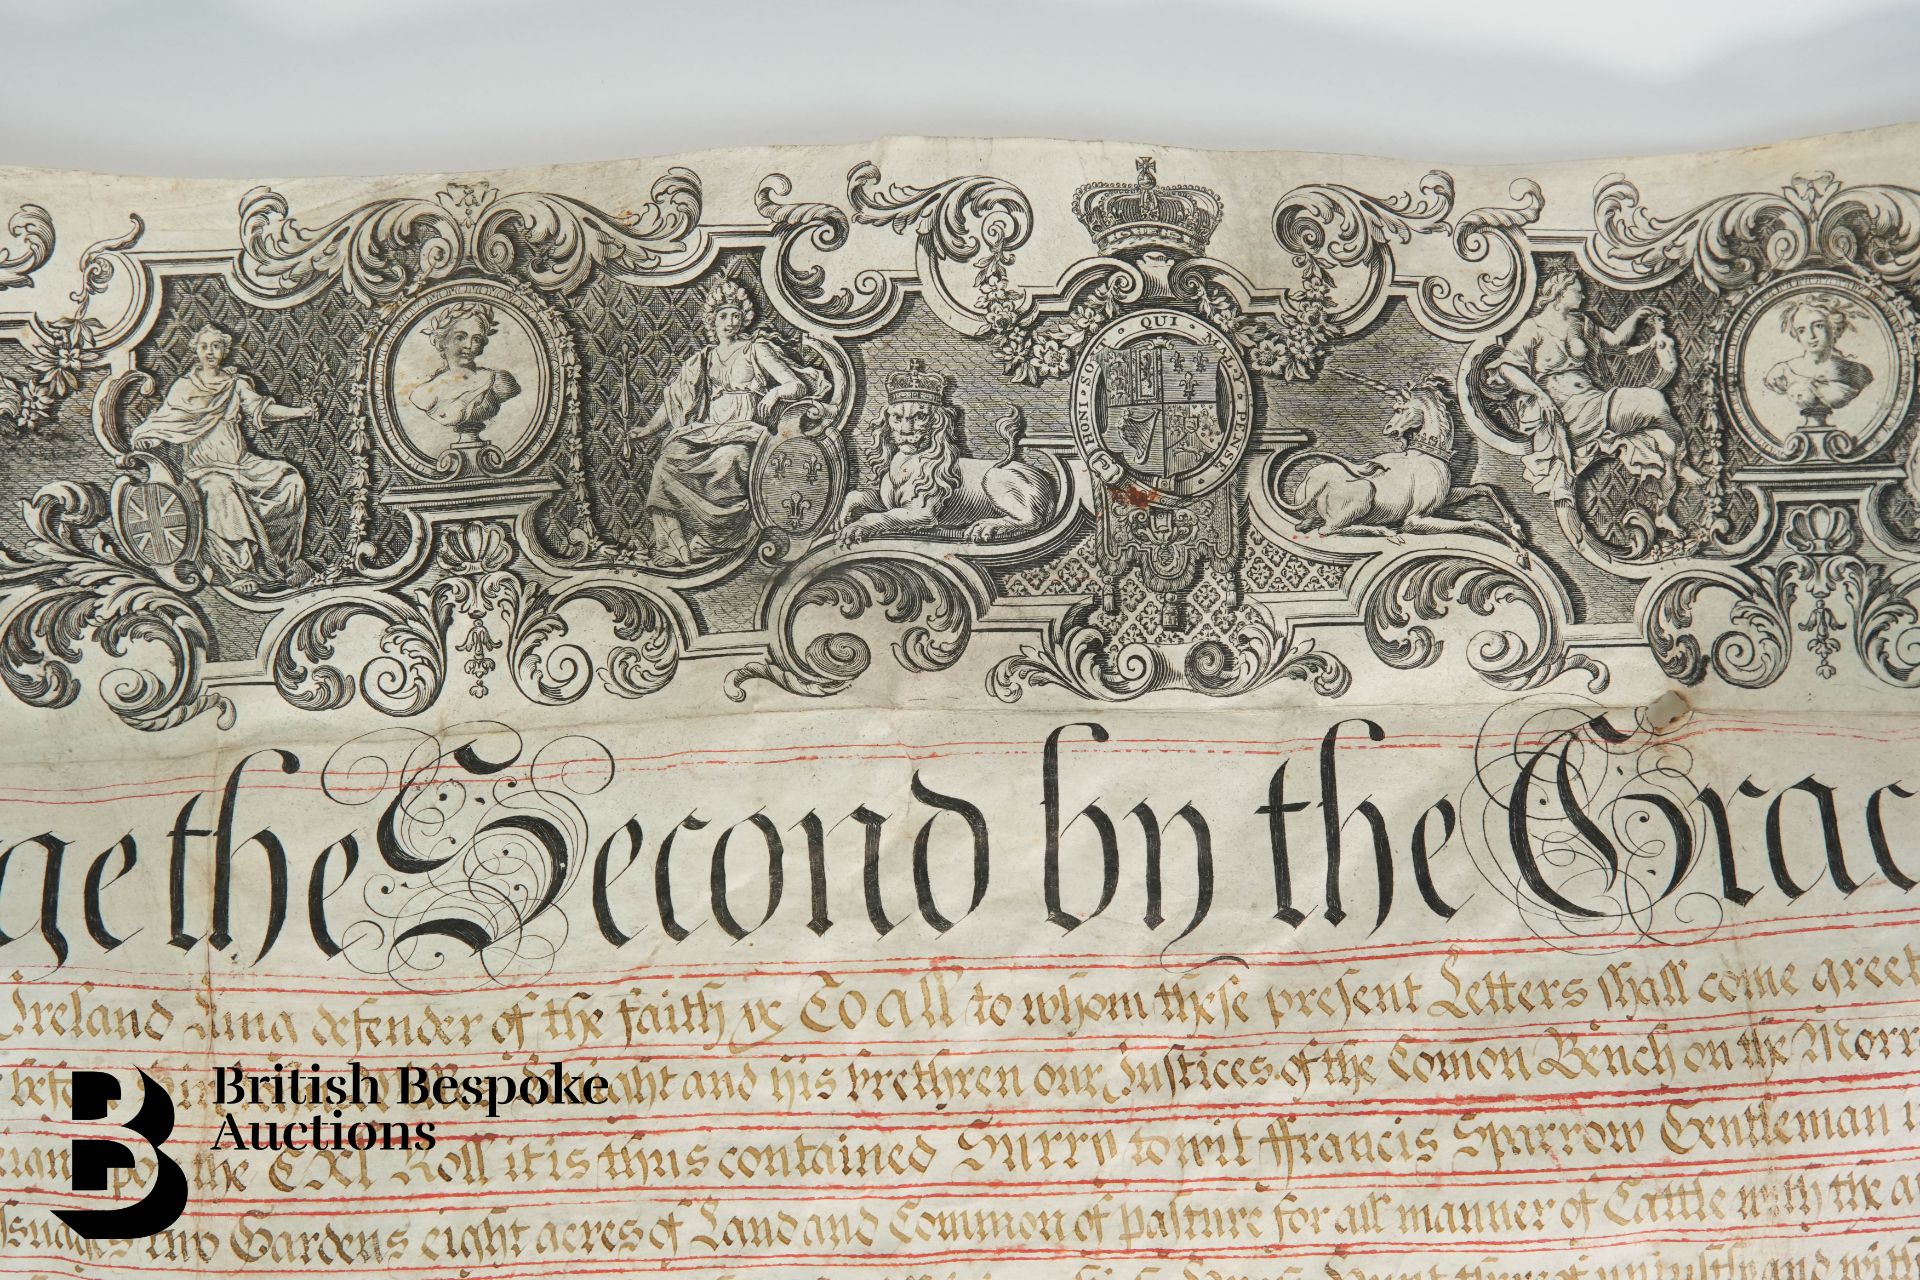 HONI · SOI · QUI · MAL · Y · PENSE
ge the Second by the Grac
Ireland King defender of the faith &c To all to whom these present Letters shall come greet
his brethren our Justices of the Comon Bench on the Morr
the CXl Roll it is thus contained Surry to wit ffrancis Sparrow Gentleman
ssuages two Gardens eight acres of Land and Common of Pasture for all manner of Cattle with the
British Bespoke
Auctions